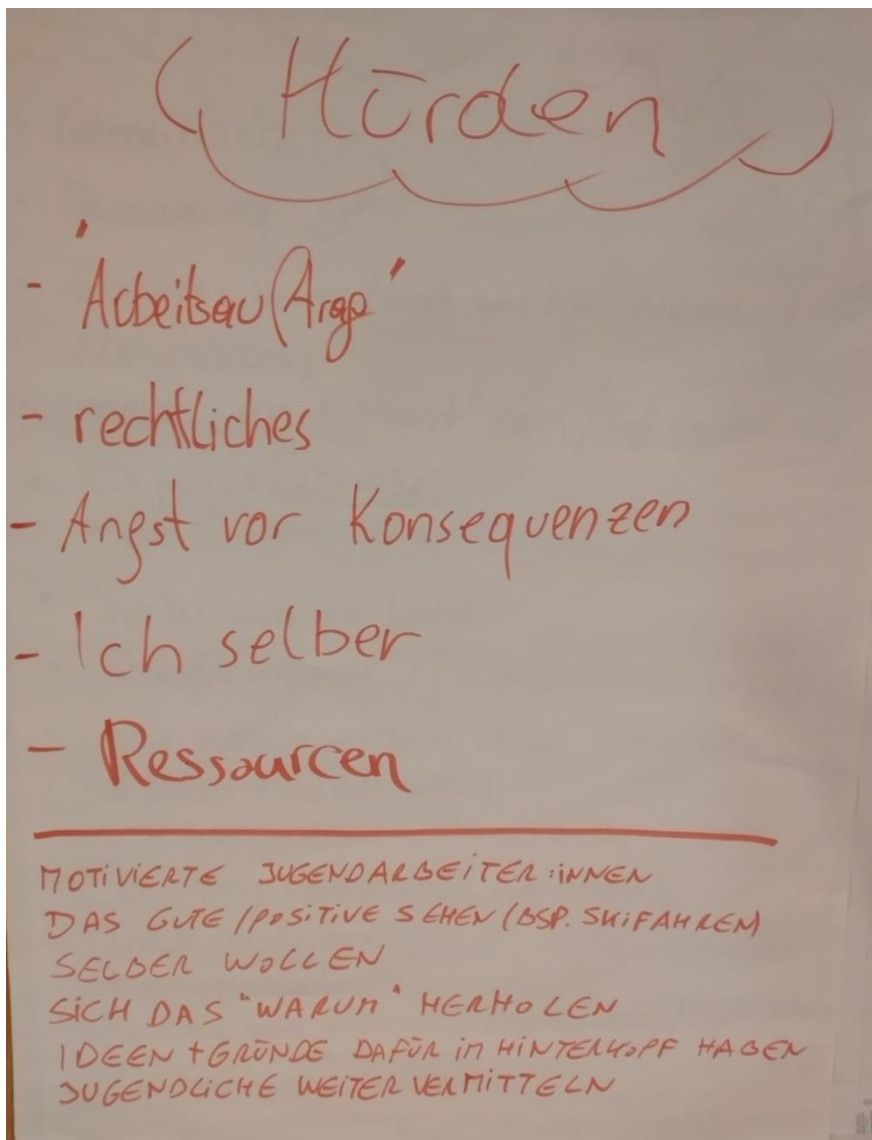 Hürden
- 'Arbeitsau(Arge'
- rechtliches
- Angst vor Konsequenzen
- Ich selber
- Ressourcen
MOTIVIERTE JUGENDARBEITER:INNEN
DAS GUTE/POSITIVE SEHEN (BSP. SKIFAHREN)
SELBER WOLLEN
SICH DAS "WARUM" HERHOLEN
IDEEN + GRÜNDE DAFÜR IM HINTERKOPF HABEN
JUGENDLICHE WEITER VERMITTELN